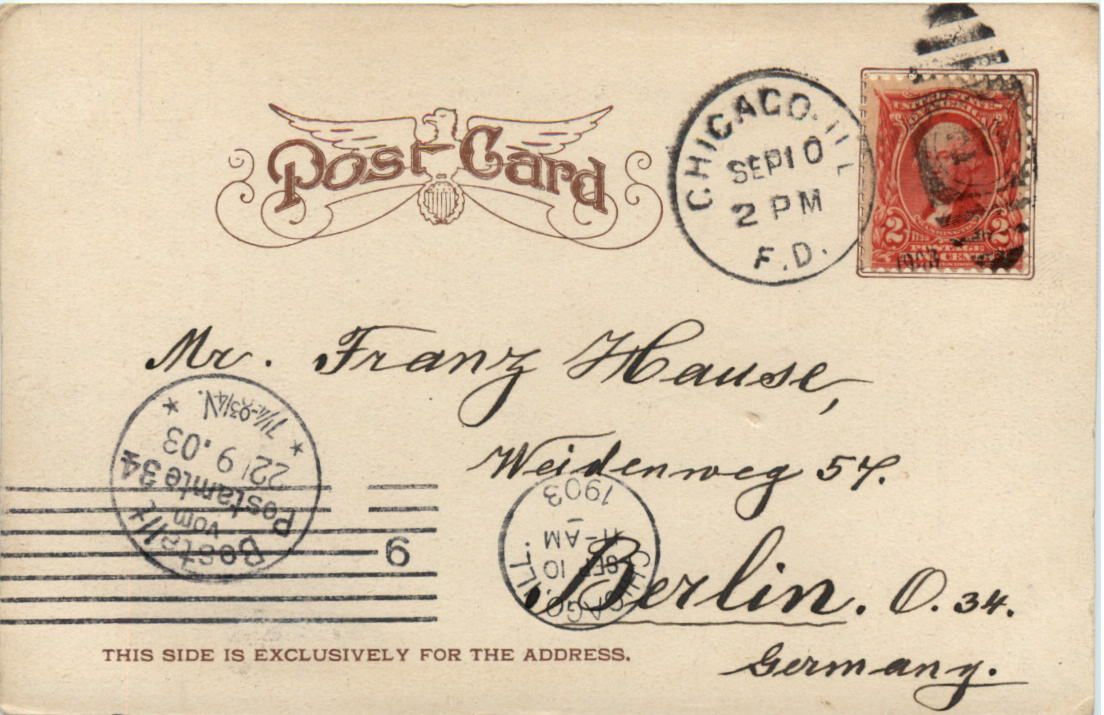 Post Card
CHICAGO. ILL
SEP 10
2 PM
F.D.
UNITED STATES
OF AMERICA
2 2
POSTAGE
TWO CENTS
1903
Mr. Franz Hause,
Weidenweg 57.
Berlin. O. 34.
Germany.
Bestellt
vom
Postamte 34
22 9. 03
7 1/4-8 3/4 V.
CHICAGO, ILL.
SEP 10
11-AM
1903
6
THIS SIDE IS EXCLUSIVELY FOR THE ADDRESS.